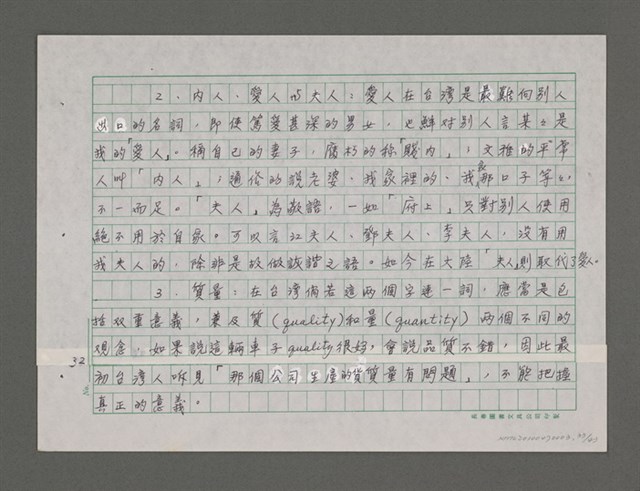 2、内人、愛人与夫人：愛人在台湾是最難向別人
出口的名詞，即使篤愛甚深的男女，也鮮对別人言某某是
我的「愛人」。稱自己的妻子，腐朽的称「賤内」；文雅的平常
人叫「内人」；通俗的說老婆、我家裡的、我那口子等等，
不一而足。「夫人」為敬語，一如「府上」只對別人使用
絕不用於自家。可以言江夫人、鄧夫人、李夫人，沒有用
我夫人的，除非是故做詼諧之語。如今在大陸「夫人」則取代了愛人。
3、質量：在台灣倘若這兩個字連一詞，應當是包
括双重意義，兼及質(quality)和量(quantity)兩個不同的
觀念，如果說這輛車子quality很好，會說品質不錯，因此最
32
初台湾人听見「那個公司生産的貨質量有問題」，不能把握
真正的意義。